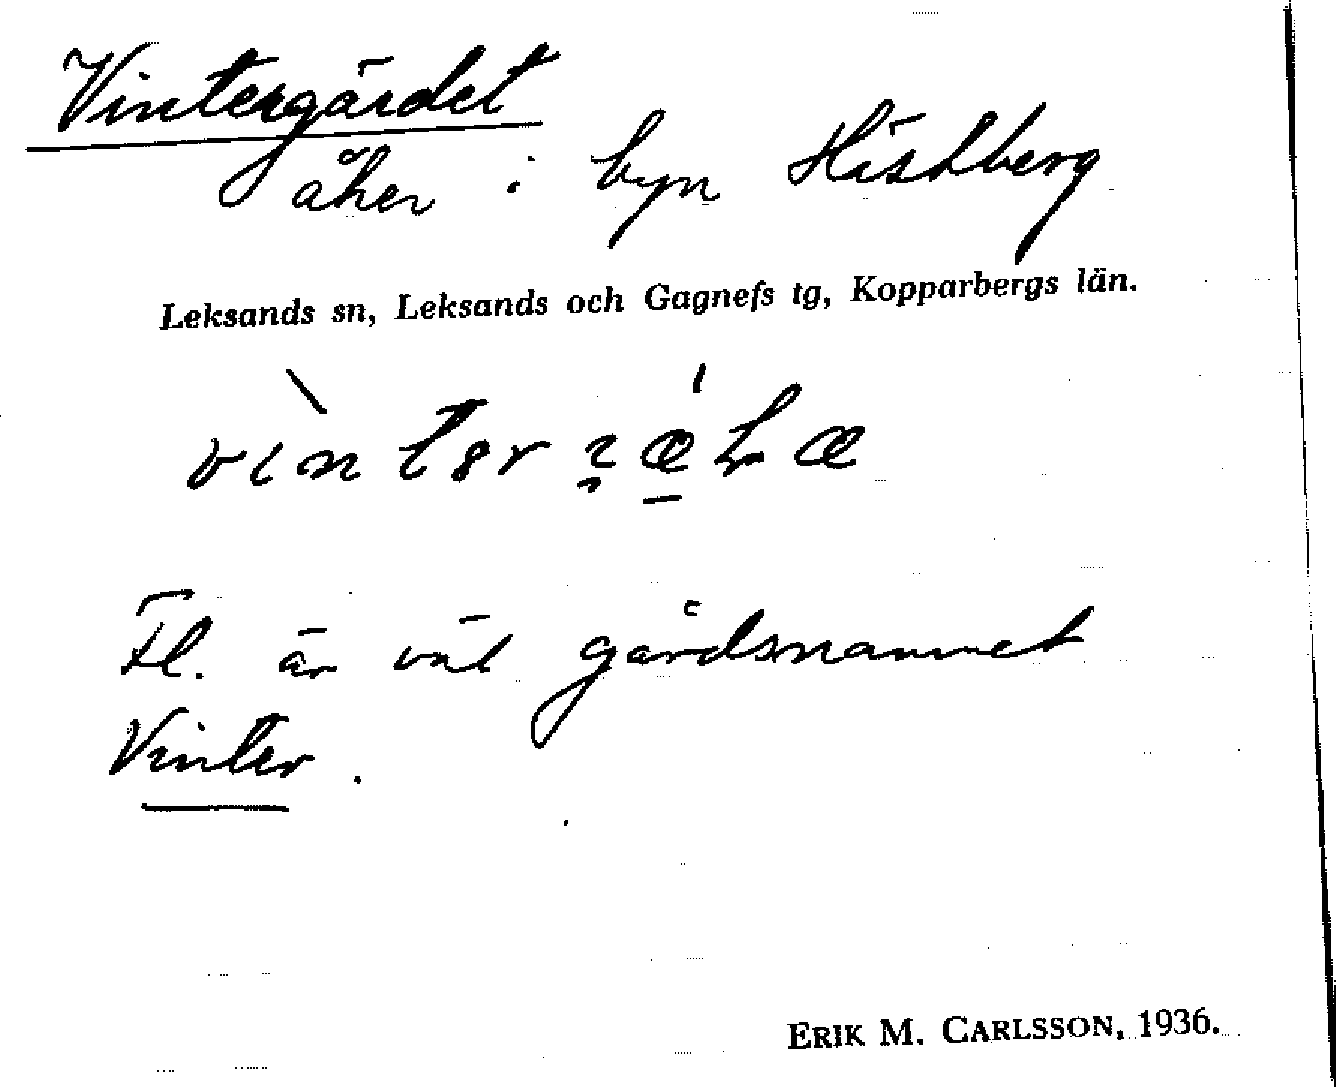 Vintergärdet
åker i byn Hästberg
Leksands sn, Leksands och Gagnefs tg, Kopparbergs län.
Fl. är väl gårdsnamnet
Vinter.
ERIK M. CARLSSON, 1936.